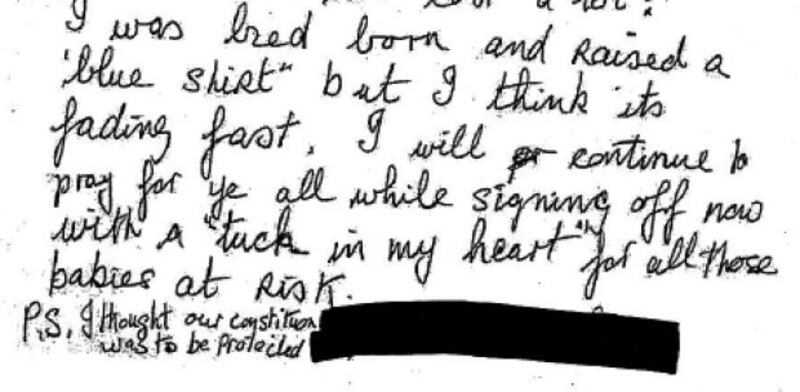 I was bred born and raised a
"blue shirt" but I think its
fading fast. I will continue to
pray for ye all while signing off now
with a "tuck in my heart" for all those
babies at risk.
P.S. I thought our constituon
was to be protected